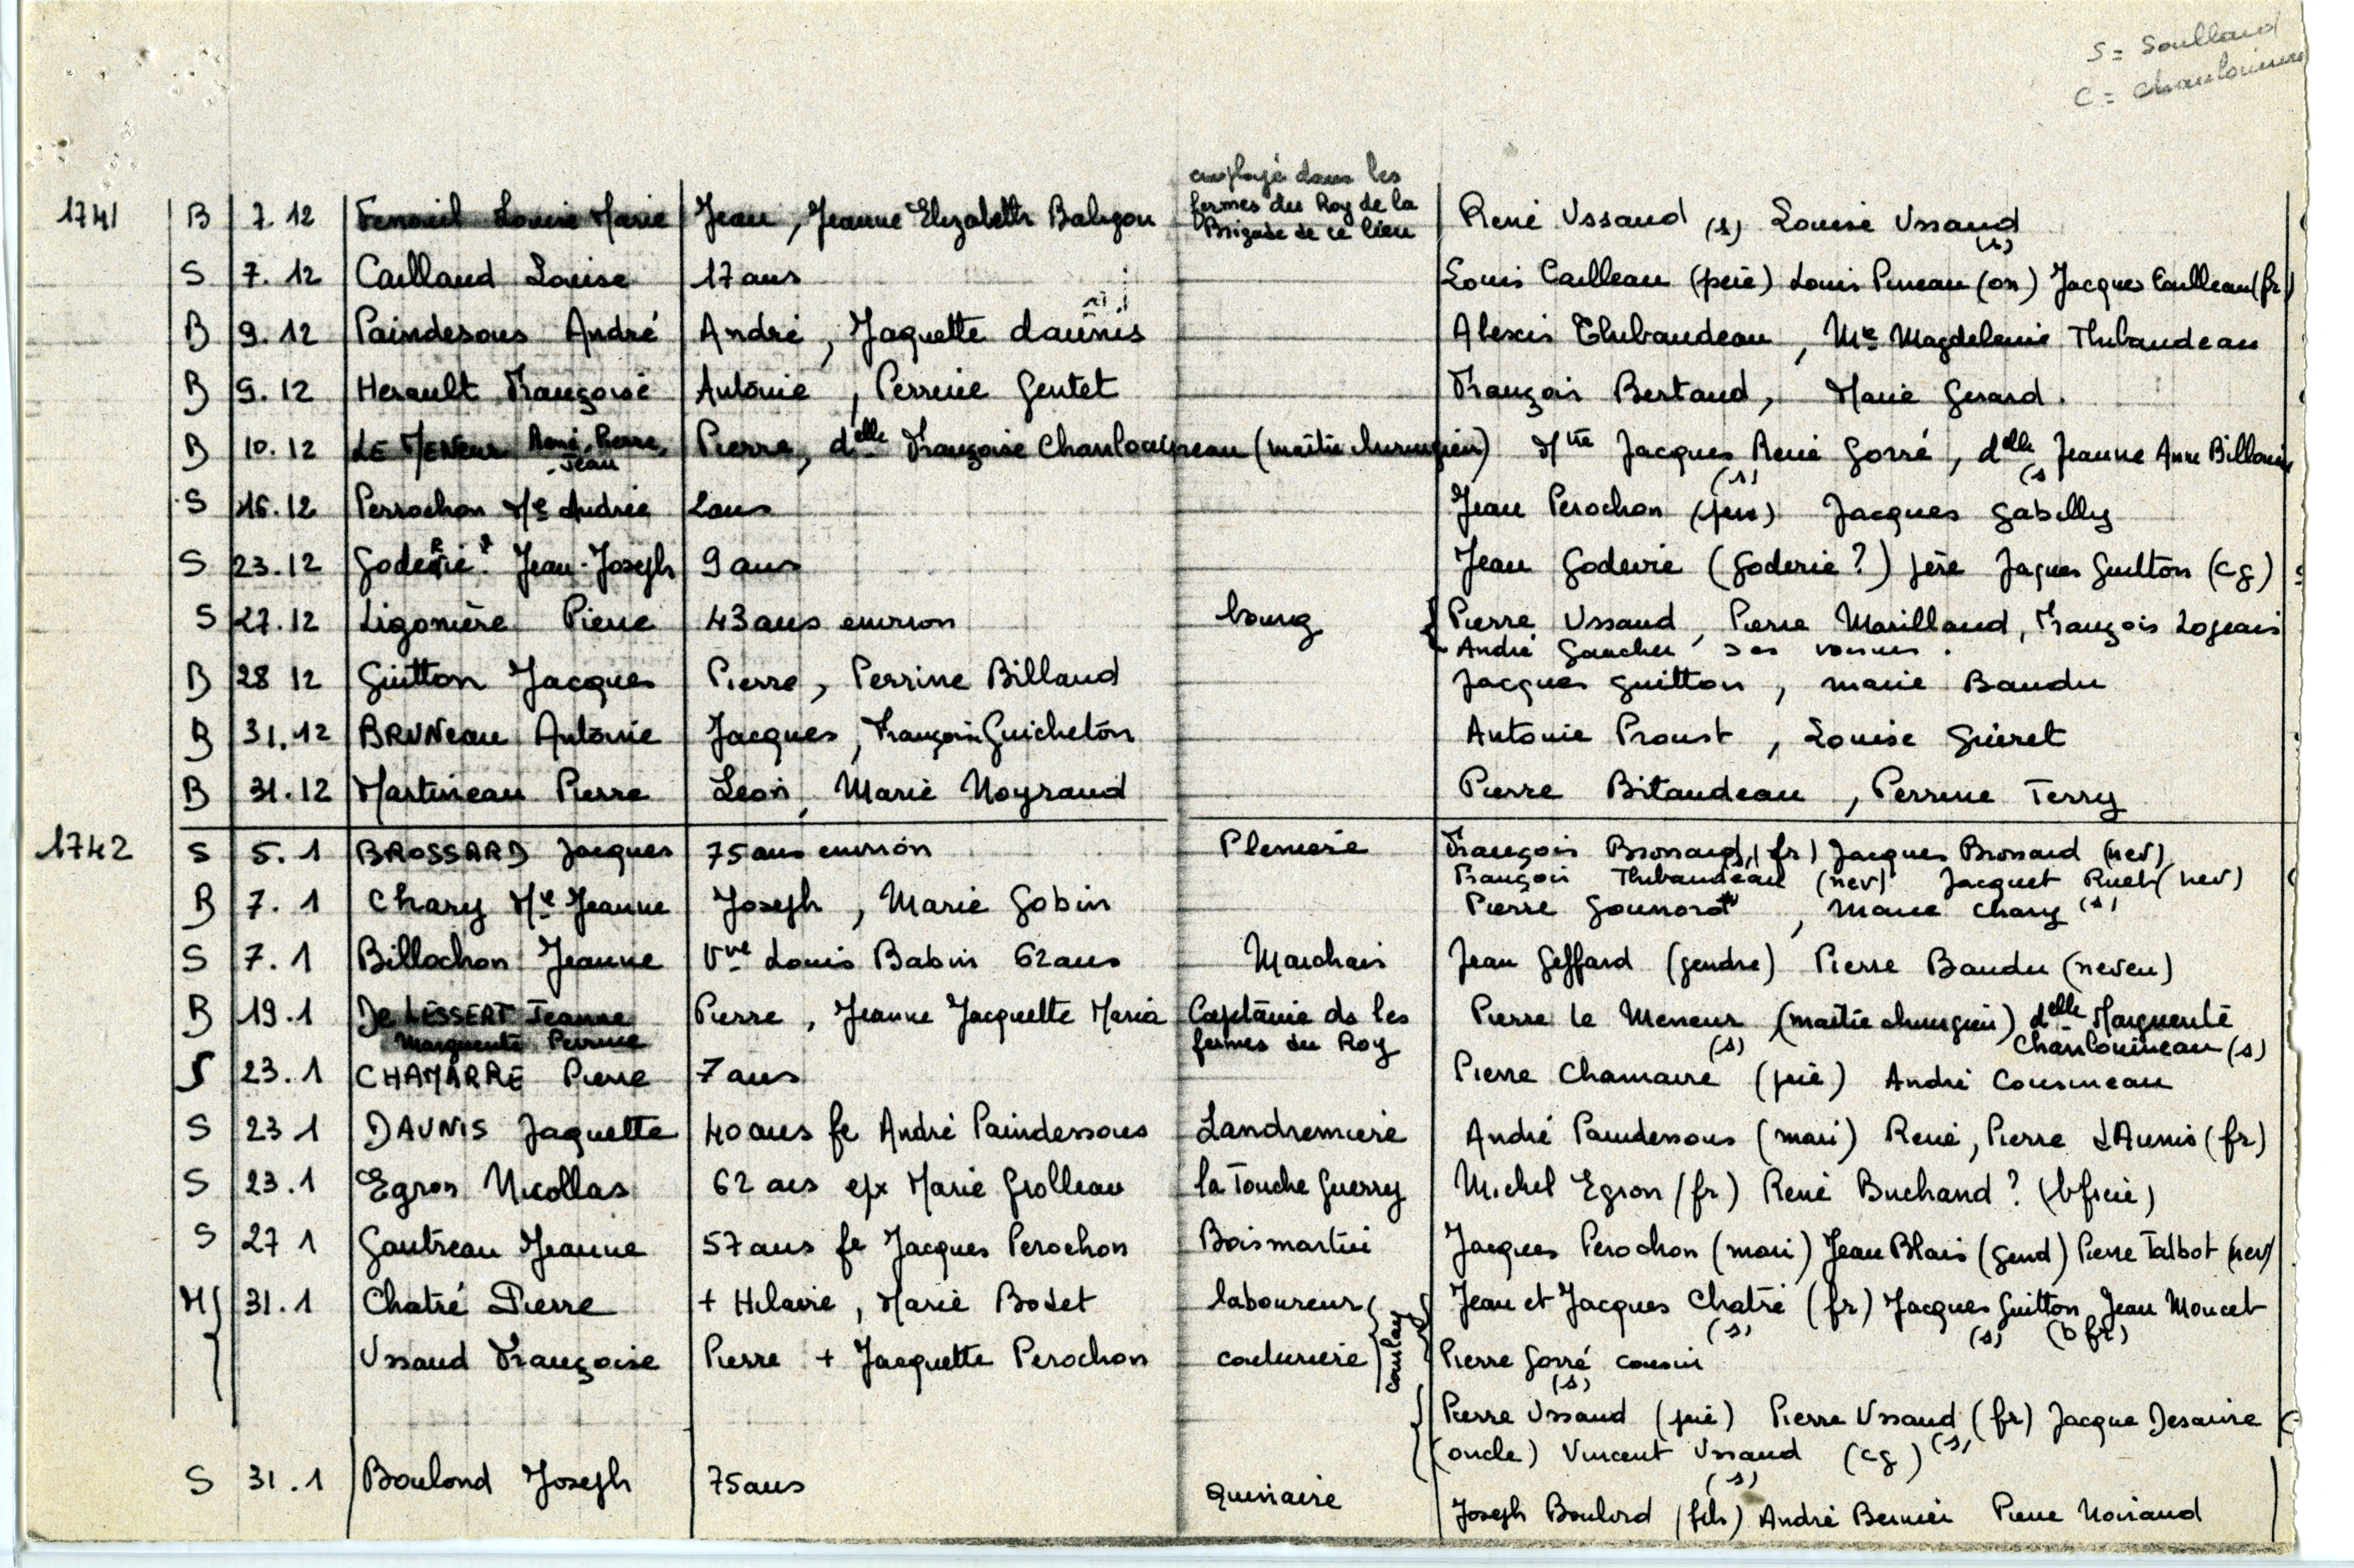 S = Soullard
C = Chanlouineau
employé dans les
1741 B 7.12 Fenouil Louise Marie Jean, Jeanne Elizabeth Baligon fermes du Roy de la Brigade de ce lieu René Ussaud (s) Louise Ussaud (s)
S 7.12 Caillaud Louise 17 ans Louis Cailleau (père) Louis Pineau (on) Jacques Cailleau (fr)
B 9.12 Paindesous André André, Jaquette daunis Alexis Thibaudeau, Me Magdeleine Thibaudeau
B 9.12 Herault Françoise Antoine, Perrine Gentet François Bertaud, Marie Gerard.
B 10.12 LE MENeur René, Pierre, Jean Pierre, delle Françoise Chanlouineau (maître chirurgien) Mtre Jacques René Gorré (s), delle Jeanne Anne Billouin (s
S 16.12 Perrochon Me Andrée 2 ans Jean Perochon (père) Jacques Gabilly
S 23.12 Goderie? Jean-Joseph 9 ans Jean Godevie (Goderie?) père Jaques Guitton (cg)
S 27.12 Ligonière Pierre 43 ans environ bourg Pierre Ussaud, Pierre Marillaud, François Logeais
André Gaucher ses voisins.
B 28 12 Guitton Jacques Pierre, Perrine Billaud Jacques Guitton, marie Baudu
B 31.12 BRUNeau Antoine Jacques, Françoise Guicheton Antoine Proust, Louise Guéret
B 31.12 Martineau Pierre Léon, Marie Noyraud Pierre Bitaudeau, Perrine Terry
1742 S 5.1 BROSSARD Jacques 75 ans environ Plenière François Brossard (fr) Jacques Brossard (nev)
François Thibaudeau (nev) Jacquet Ruet (nev)
B 7.1 Chary Me Jeanne Joseph, Marie Gobin Pierre Gounord, Marie Chary (s)
S 7.1 Billochon Jeanne Vve Louis Babin 62 ans Marchais Jean Geffard (gendre) Pierre Baudu (neveu)
B 19.1 De LESSERT Jeanne Pierre, Jeanne Jacquette Maria Capitaine ds les Pierre le Meneur (maître chirurgien) delle Marguerite
Marguerite Perrine fermes du Roy (s) Chanlouineau (s)
S 23.1 CHAMARRE Pierre 7 ans Pierre Chamarre (père) André Cousineau
S 23 1 DAUNIS Jaquette 40 ans fe André Paindessous Landremière André Paindessous (mari) René, Pierre dAunis (fr)
S 23.1 Egron Nicollas 62 ans epx Marie Grolleau la Touche Guerry Michel Egron (fr) René Buchand? (bfrère)
S 27 1 Gautreau Jeanne 57 ans fe Jacques Perochon Boismartin Jacques Perochon (mari) Jean Blais (gend) Pierre Talbot (nev)
M 31.1 Chatré Pierre + Hilaire, Marie Bodet laboureur Jean et Jacques Chatré (fr) Jacques Guitton Jean Moucet
(s) (s) (b fr)
Ussaud Françoise Pierre + Jacquette Perochon couturière coulay Pierre Gorré cousin
(s)
Pierre Ussaud (père) Pierre Ussaud (fr) Jacque Desaivre
(oncle) Vincent Ussaud (cg) (s)
(s)
S 31.1 Boulord Joseph 75 ans Quinaire
Joseph Boulord (fils) André Bernier Pierre Noiraud